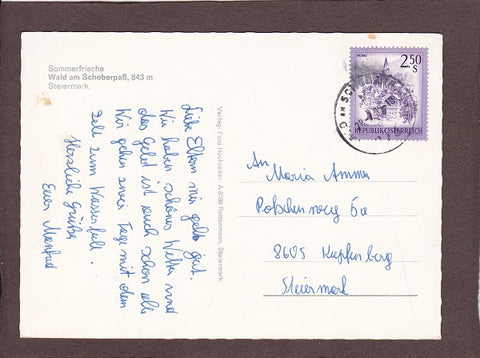 Sommerfrische
Wald am Schoberpaß, 843 m
Steiermark
Liebe Eltern mir geht's gut.
Wir haben schönes Wetter und
das Geld ist auch schon alle
Wir gehen zwei Tage mit dem
Zelt zum Wasserfall.
Herzliche Grüße
Euer Manfred
Verlag: Foto Hochreiter, A-8786 Rottenmann, Steiermark
2.50
S
REPUBLIK ÖSTERREICH
AM SCHOBER
An
Maria Ammer
5a
8605 Kapfenberg
Steiermark